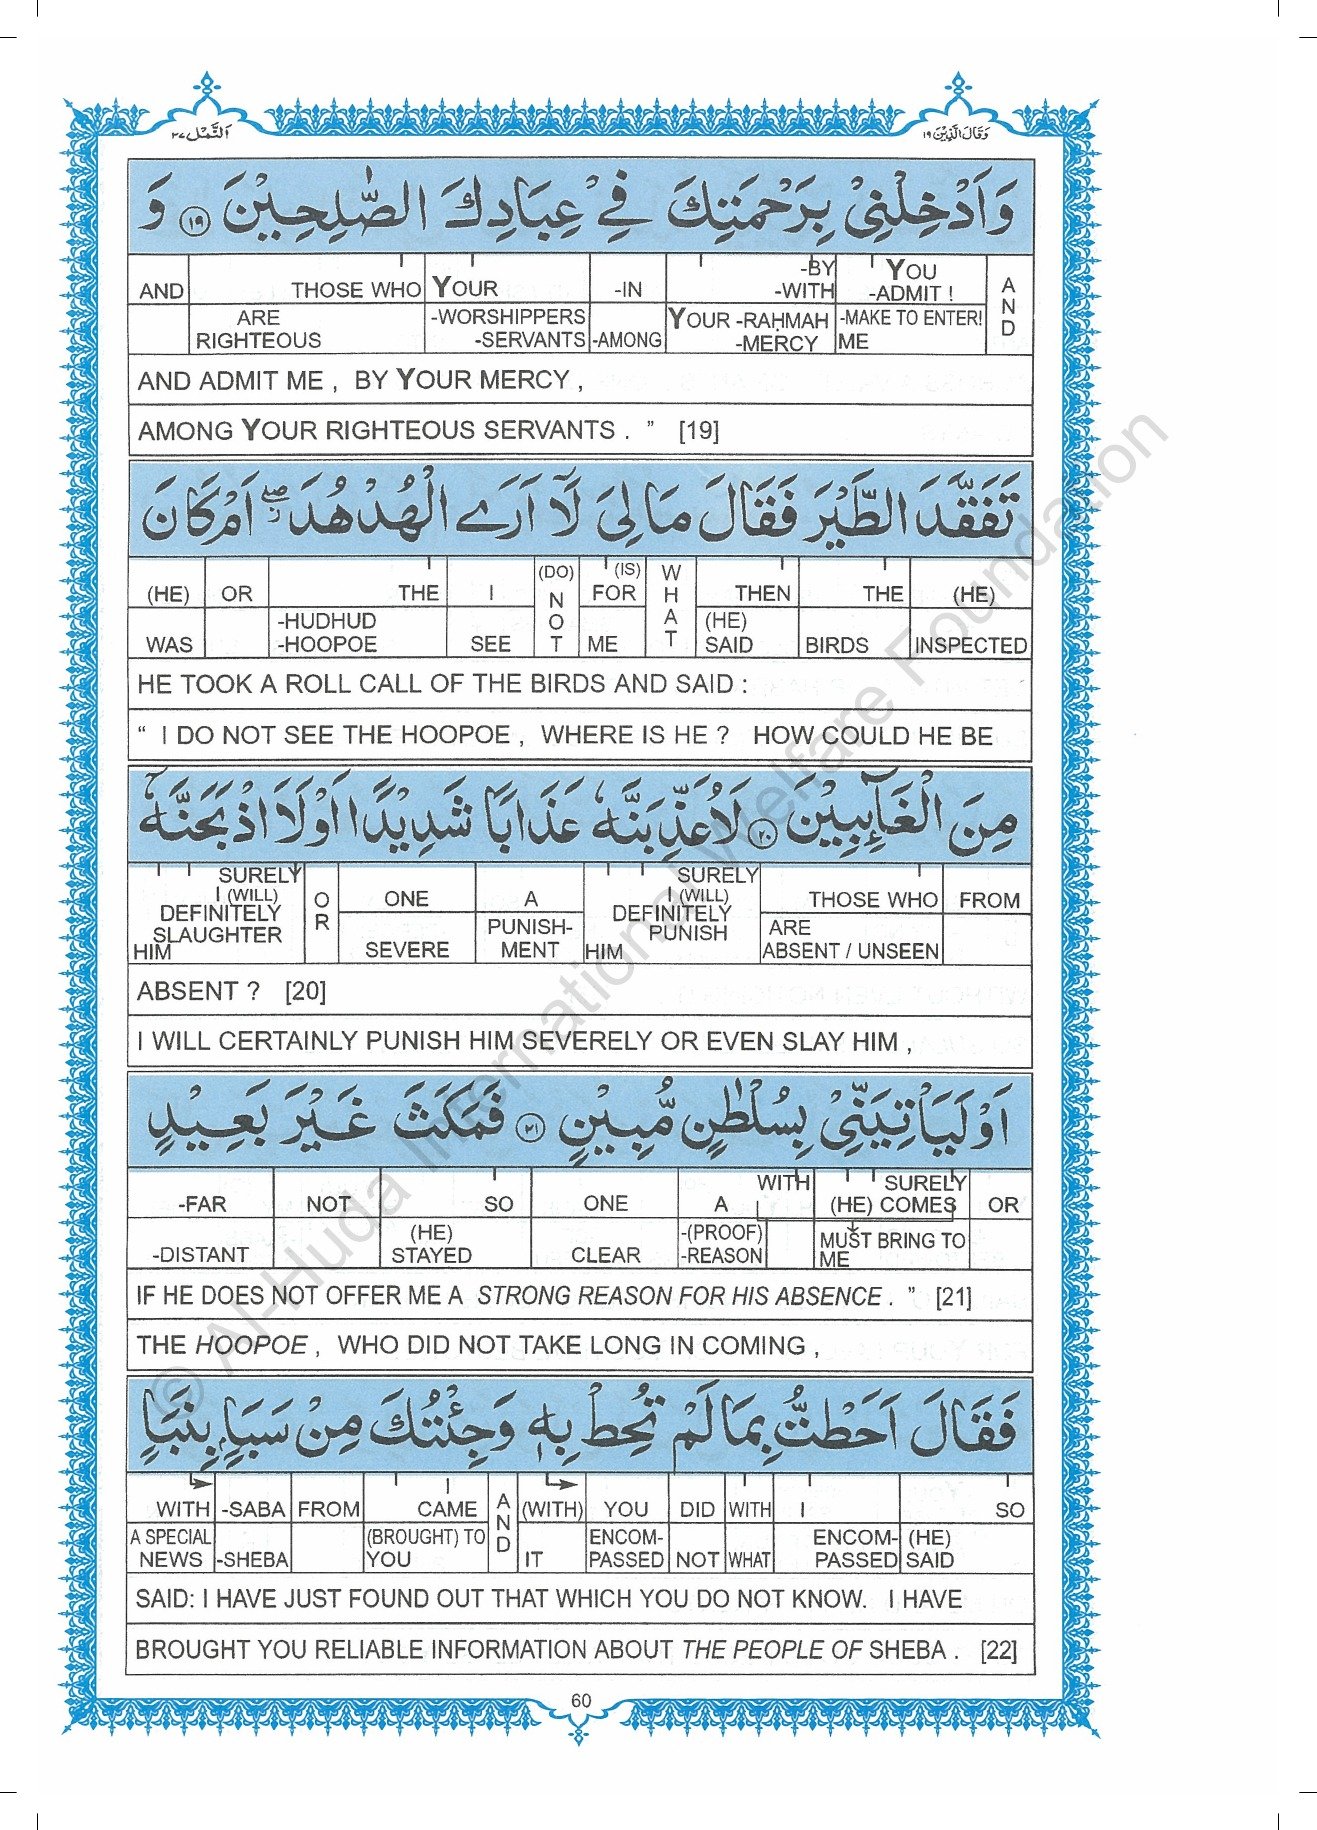 اَلنَّمْل ٢٧
وَقَالَ الَّذِيْنَ ١٩
وَاَدْخِلْنِيْ بِرَحْمَتِكَ فِيْ عِبَادِكَ الصّٰلِحِيْنَ ١٩ وَ
AND THOSE WHO YOUR -IN -BY -WITH YOU -ADMIT ! AND
ARE RIGHTEOUS -WORSHIPPERS -SERVANTS -AMONG YOUR -RAḤMAH -MERCY -MAKE TO ENTER! ME
AND ADMIT ME , BY YOUR MERCY ,
AMONG YOUR RIGHTEOUS SERVANTS . ” [19]
تَفَقَّدَ الطَّيْرَ فَقَالَ مَا لِيَ لَاۤ اَرَے الْهُدْهُدَ ۖ اَمْ كَانَ
(HE) OR THE I (DO) NOT (IS) FOR WHAT THEN THE (HE)
WAS -HUDHUD -HOOPOE SEE ME (HE) SAID BIRDS INSPECTED
HE TOOK A ROLL CALL OF THE BIRDS AND SAID :
“ I DO NOT SEE THE HOOPOE , WHERE IS HE ? HOW COULD HE BE
مِنَ الْغَآىِٕبِيْنَ ٢٠ لَاُعَذِّبَنَّهٗ عَذَابًا شَدِيْدًا اَوْ لَاَاذْبَحَنَّهٗۤ
SURELY I (WILL) DEFINITELY SLAUGHTER OR ONE A SURELY I (WILL) DEFINITELY PUNISH THOSE WHO FROM
HIM SEVERE PUNISH- MENT HIM ARE ABSENT / UNSEEN
ABSENT ? [20]
I WILL CERTAINLY PUNISH HIM SEVERELY OR EVEN SLAY HIM ,
اَوْ لَيَاْتِيَنِّيْ بِسُلْطٰنٍ مُّبِيْنٍ ٢١ فَمَكَثَ غَيْرَ بَعِيْدٍ
-FAR NOT SO ONE A WITH SURELY (HE) COMES OR
-DISTANT (HE) STAYED CLEAR -(PROOF) -REASON MUST BRING TO ME
IF HE DOES NOT OFFER ME A STRONG REASON FOR HIS ABSENCE . ” [21]
THE HOOPOE , WHO DID NOT TAKE LONG IN COMING ,
فَقَالَ اَحَطْتُّ بِمَا لَمْ تُحِطْ بِهٖ وَجِئْتُكَ مِنْ سَبَاٍۭ بِنَبَاٍ
WITH -SABA FROM CAME AND (WITH) YOU DID WITH I SO
A SPECIAL NEWS -SHEBA (BROUGHT) TO YOU IT ENCOM- PASSED NOT WHAT ENCOM- PASSED (HE) SAID
SAID: I HAVE JUST FOUND OUT THAT WHICH YOU DO NOT KNOW. I HAVE
BROUGHT YOU RELIABLE INFORMATION ABOUT THE PEOPLE OF SHEBA . [22]
60
© Al-Huda International Welfare Foundation